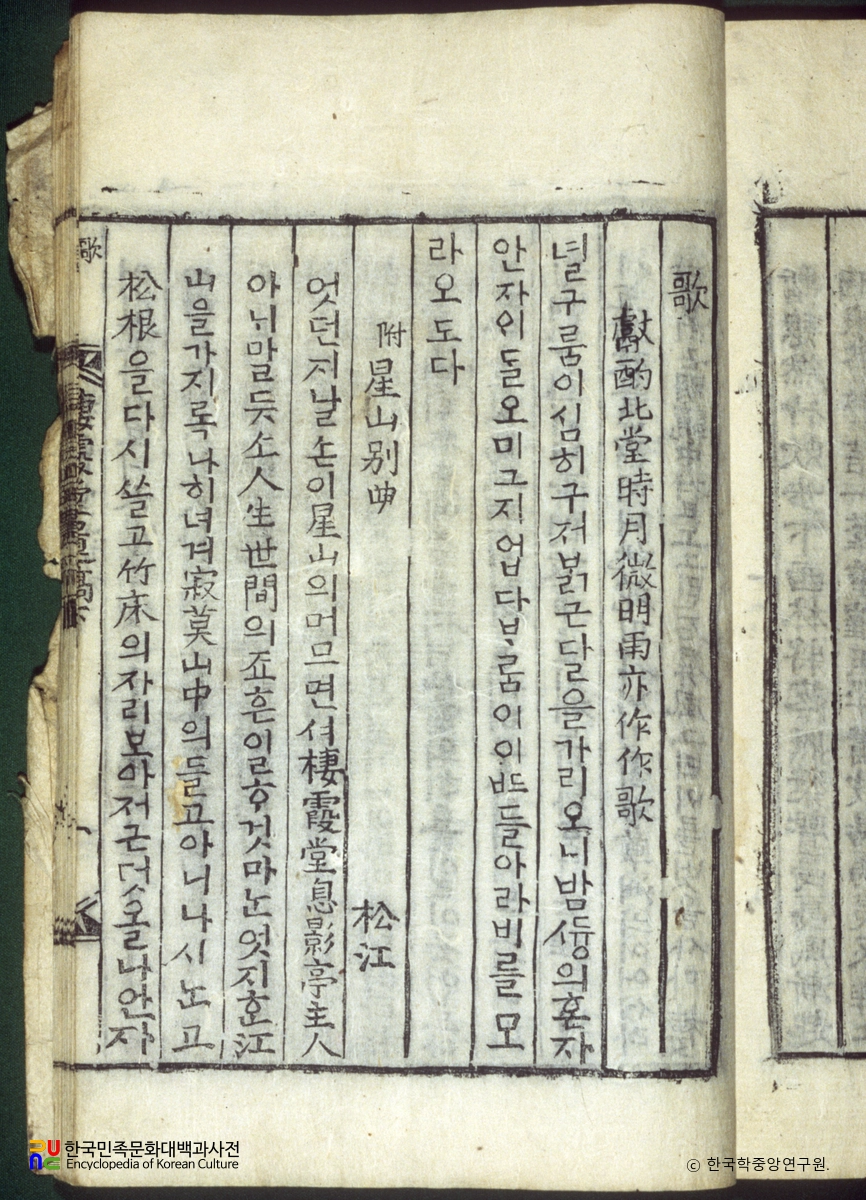 歌
獻酌北堂時月微明雨亦作作歌
녈구룸이심히구저ᄇᆞᆰ근ᄃᆞᆯ을가리오니밤듕의혼자
안자이ᄃᆞᆯ오미그지업다ᄇᆞ람이이ᄠᅳ들아라비를모
라오도다
附星山別曲
松江
엇던지날손이星山의머므면셔棲霞堂息影亭主人
아니말듯소人生世間의죠흔이른ᄒᆞᆯ것마ᄂᆞᆫ엇지ᄒᆞᆫ江
山을가지록나히녀겨寂莫山中의들고아니나시ᄂᆞᆫ고
松根을다시쓸고竹床의자리보아져근덧올나안자
歌
棲霞堂遺稿下
한국민족문화대백과사전
Encyclopedia of Korean Culture
ⓒ 한국학중앙연구원.